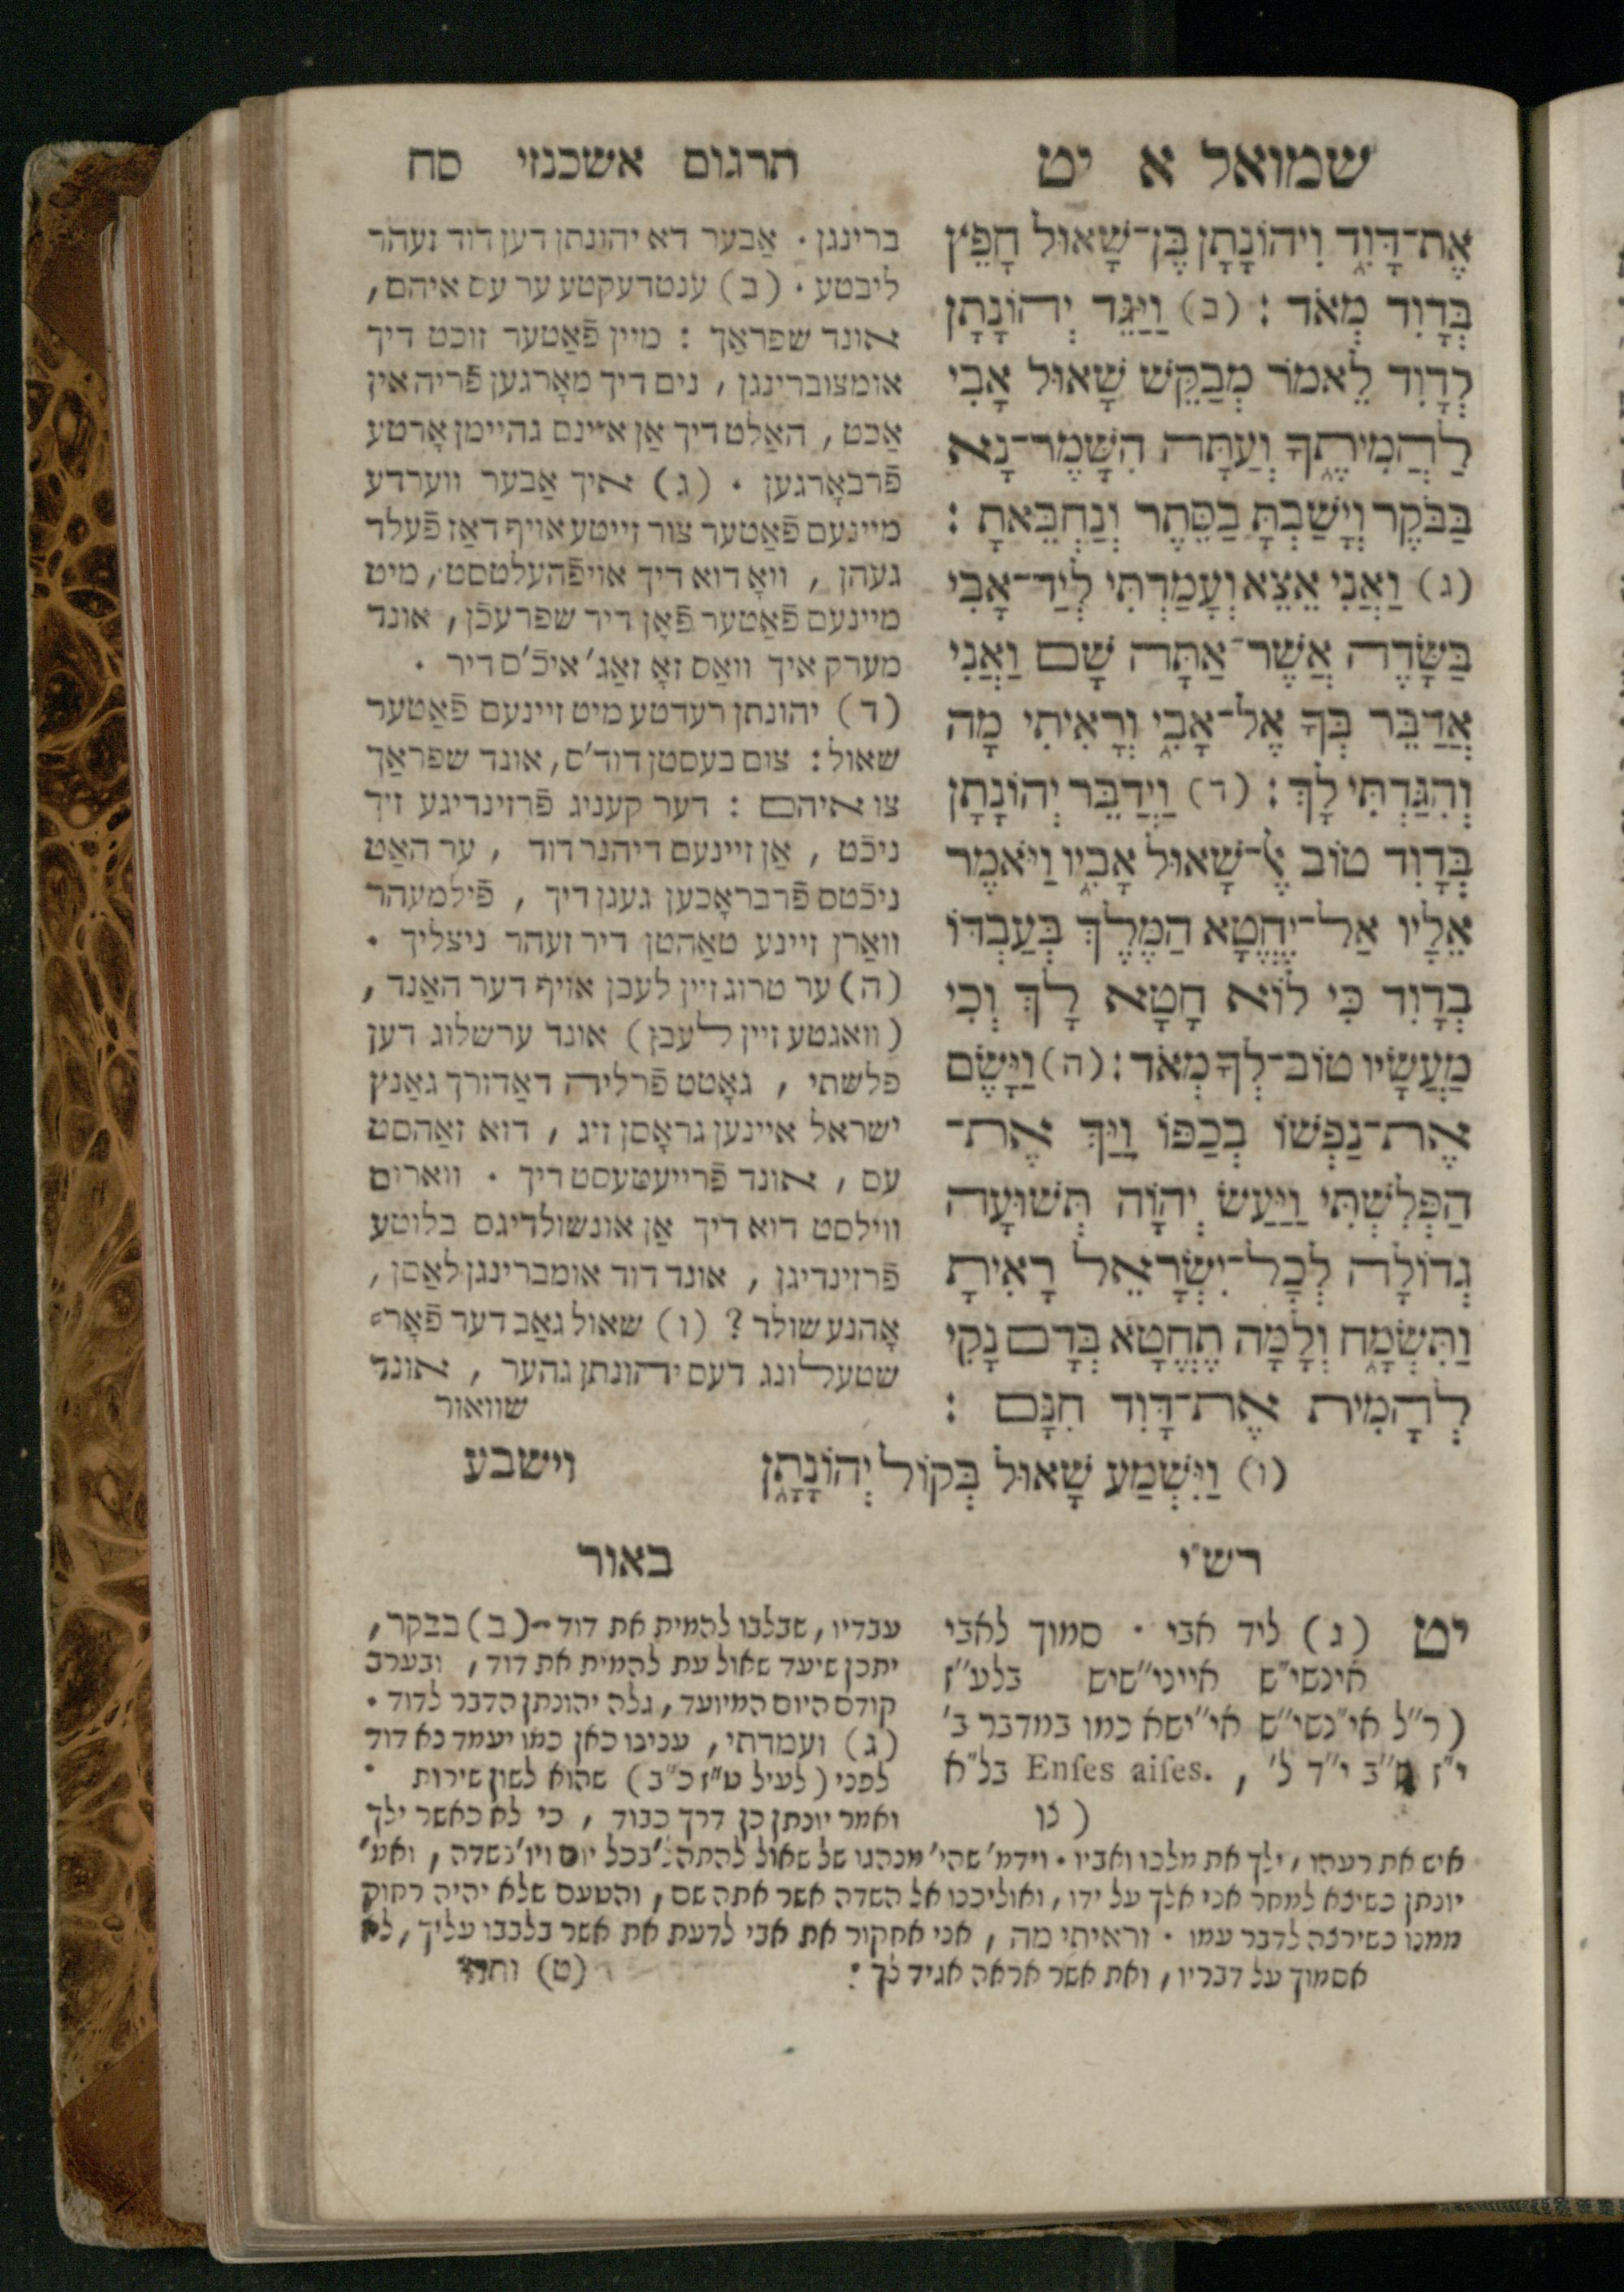 שמואל א יט
תרגום אשכנזי סח
אֶת־דָּוִ֑ד וִיהוֹנָתָן בֶּן־שָׁאוּל חָפֵץ
בְּדָוִד מְאֹד : (ב) וַיַּגֵּד יְהוֹנָתָן
לְדָוִד לֵאמֹר מְבַקֵּשׁ שָׁאוּל אָבִי
לַהֲמִיתֶ֑ךָ וְעַתָּה הִשָּׁמֶר־נָא
בַבֹּקֶר וְיָשַׁבְתָּ בַסֵּתֶר וְנַחְבֵּאתָ :
(ג) וַאֲנִי אֵצֵא וְעָמַדְתִּי לְיַד־אָבִי
בַּשָּׂדֶה אֲשֶׁר־אַתָּה שָׁם וַאֲנִי
אֲדַבֵּר בְּךָ אֶל־אָבִ֑י וְרָאִיתִי מָה
וְהִגַּדְתִּי לָךְ : (ד) וַיְדַבֵּר יְהוֹנָתָן
בְּדָוִד טוֹב אֶל־שָׁאוּל אָבִ֑יו וַיֹּאמֶר
אֵלָיו אַל־יֶחֱטָא הַמֶּלֶךְ בְּעַבְדּוֹ
בְדָוִד כִּי לוֹא חָטָא לָךְ וְכִי
מַעֲשָׂיו טוֹב־לְךָ מְאֹד : (ה) וַיָּשֶׂם
אֶת־נַפְשׁוֹ בְכַפּוֹ וַיַּךְ אֶת־
הַפְּלִשְׁתִּי וַיַּעַשׂ יְהֹוָה תְּשׁוּעָה
גְדוֹלָה לְכָל־יִשְׂרָאֵל רָאִיתָ
וַתִּשְׂמָ֑ח וְלָמָּה תֶחֱטָא בְּדָם נָקִי
לְהָמִית אֶת־דָּוִד חִנָּם :
(ו) וַיִּשְׁמַע שָׁאוּל בְּקוֹל יְהוֹנָתָ֑ן
וישבע
ברינגן . אַבער דא יהונתן דען דוד זעהר
ליבטע . (ב) ענטדעקטע ער עס איהם ,
אונד שפראַך : מיין פֿאַטער זוכט דיך
אומצוברינגן , נים דיך מאָרגען פֿריה אין
אַכט , האַלט דיך אַן איינם גהיימן אָרטע
פֿרבאָרגען . (ג) איך אַבער ווערדע
מיינעם פֿאַטער צור זייטע אויף דאַז פֿעלד
געהן , וואָ דוא דיך אויפֿהעלטסט , מיט
מיינעם פֿאַטער פֿאָן דיר שפרעכֿן , אונד
מערק איך וואַס זאָ זאַג' איכֿ'ס דיר .
(ד) יהונתן רעדטע מיט זיינעם פֿאַטער
שאול : צום בעסטן דוד'ס , אונד שפראַך
צו איהם : דער קעניג פֿרזינדיגע זיך
ניכֿט , אַן זיינעם דיהנר דוד , ער האַט
ניכֿטס פֿרבראָכען געגן דיך , פֿילמעהר
וואַרן זיינע טאַהטן דיר זעהר ניצליך .
(ה) ער טרוג זיין לעבן אויף דער האַנד ,
(וואגטע זיין לעבן) אונד ערשלוג דען
פלשתי , גאָטט פֿרליה דאַדורך גאַנץ
ישראל איינען גראָסן זיג , דוא זאַהסט
עס , אונד פֿרייעטעסט דיך . ווארום
ווילסט דוא דיך אַן אונשולדיגם בלוטע
פֿרזינדיגן , אונד דוד אומברינגן לאַסן ,
אָהנע שולד ? (ו) שאול גאַב דער פֿאָר⸗
שטעללונג דעס יהונתן גהער , אונד
שוואור
רש"י
יט (ג) ליד אבי . סמוך לאבי
אינשי"ש אייני"שיש בלע"ז
(ר"ל אי"נשי"ש אי"ישא כמו במדבר ב'
י"ז ש"ב י"ד ל' , .Enſes aiſes בל"א
(נו
באור
עבדיו , שבלבו להמית את דוד — (ב) בבקר ,
יתכן שיעד שאול עת להמית את דוד , ובערב
קודם היום המיועד , גלה יהונתן הדבר לדוד .
(ג) ועמדתי , ענינו כאן כמו יעמד נא דוד
לפני (לעיל ט"ז כ"ב) שהוא לשון שירות .
ואמר יונתן כן דרך כבוד , כי לא כאשר ילך
איש את רעהו , ילך את מלכו ואביו . וידמ' שהי' מנהגו של שאול להתהל' בכל יום ויו' בשדה , ואמ'
יונתן כשיצא למחר אני אלך על ידו , ואוליכנו אל השדה אשר אתה שם , והטעם שלא יהיה רחוק
ממנו כשירצה לדבר עמו . וראיתי מה , אני אחקור את אבי לדעת את אשר בלבבו עליך , לא
אסמוך על דבריו , ואת אשר אראה אגיד לך :
(ט) ותהי